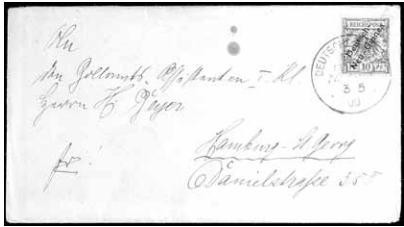 An
den Zollamts-Assistenten I. Kl.
Herrn H. Beyer
fr!
Hamburg-St Georg
Danielstraße
REICHSPOST
10
DEUTSCH
3 5